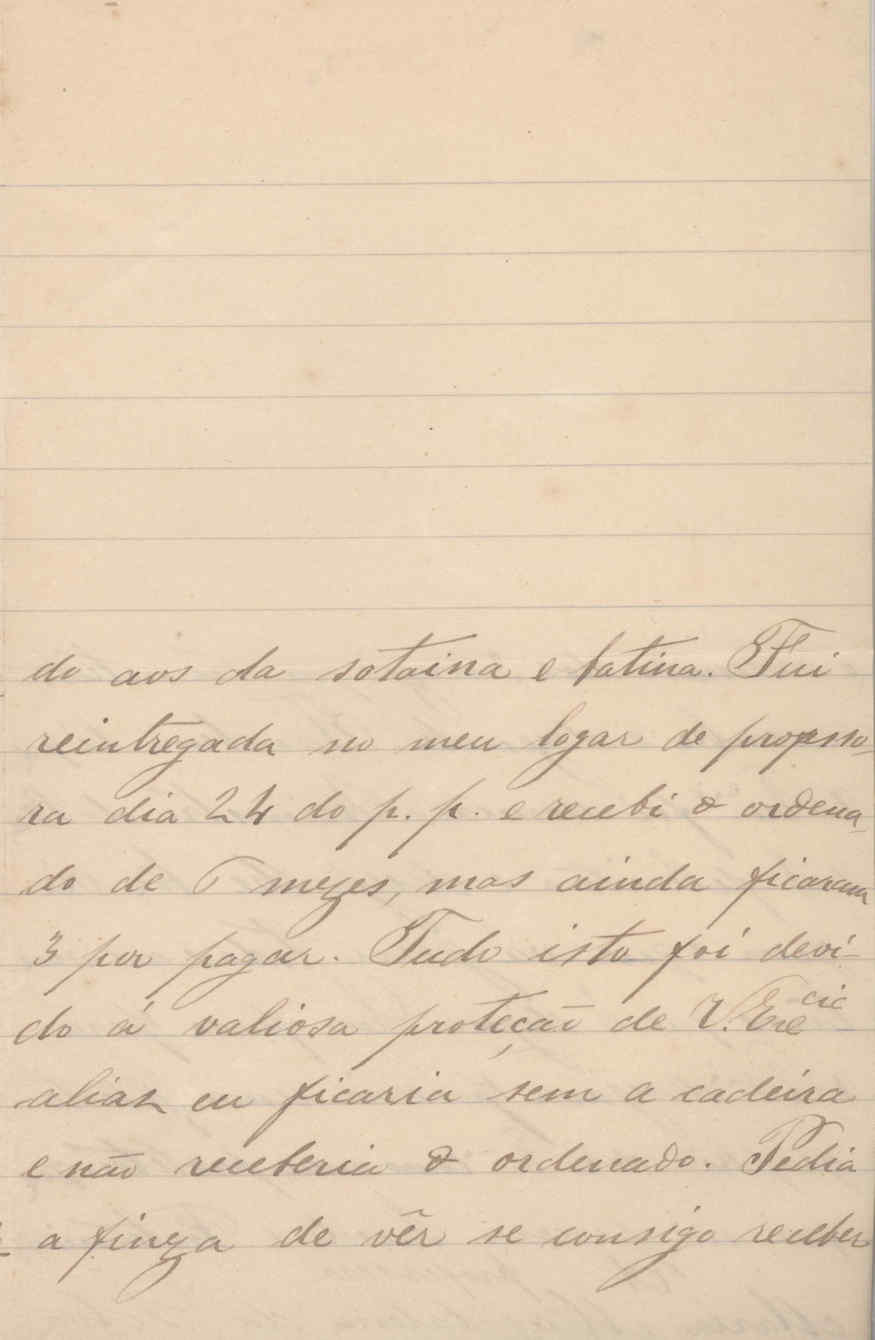 do aos da sotaina e batina. Fui
reintregada no meu logar de professo-
ra dia 24 do p. p. e recebi o ordena-
do de 6 mezes, mas ainda ficaram
3 por pagar. Tudo isto foi devi-
do á valiosa proteção de V. Excia
alias eu ficaria sem a cadeira
e não receberia o ordenado. Pedia
a fineza de vêr se consigo receber